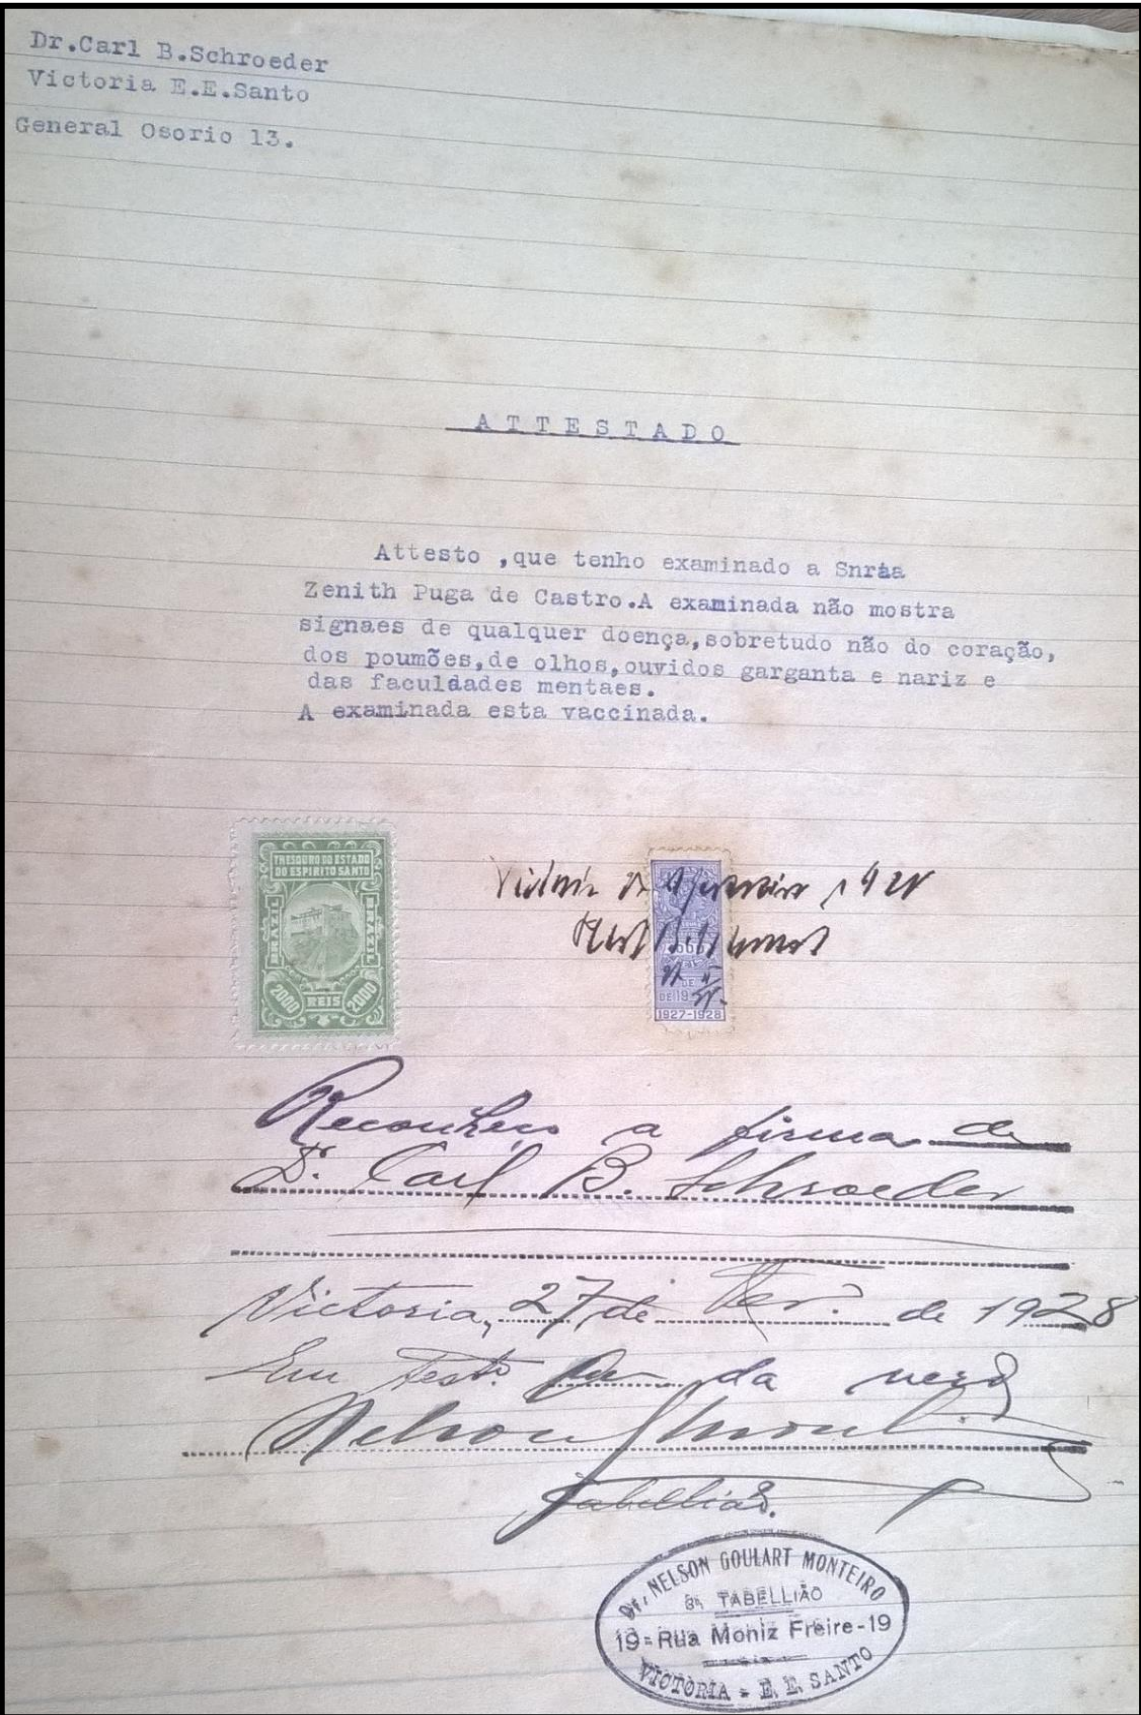 Dr.Carl B.Schroeder
Victoria E.E.Santo
General Osorio 13.
ATTESTADO
Attesto ,que tenho examinado a Snraa
Zenith Puga de Castro.A examinada não mostra
signaes de qualquer doença,sobretudo não do coração,
dos poumões,de olhos,ouvidos garganta e nariz e
das faculdades mentaes.
A examinada esta vaccinada.
THESOURO DO ESTADO
DO ESPIRITO SANTO
BRAZIL
BRAZIL
2000 REIS 2000
DE 19
1927-1928
Reconheço a firma de
Dr. Carl B. Schroeder
Victoria, 27 de Fev. de 1928
Em Testo da verde
Nelson
Tabellião.
Dr. NELSON GOULART MONTEIRO
3º TABELLIÃO
19=Rua Moniz Freire-19
VICTORIA - E. E. SANTO